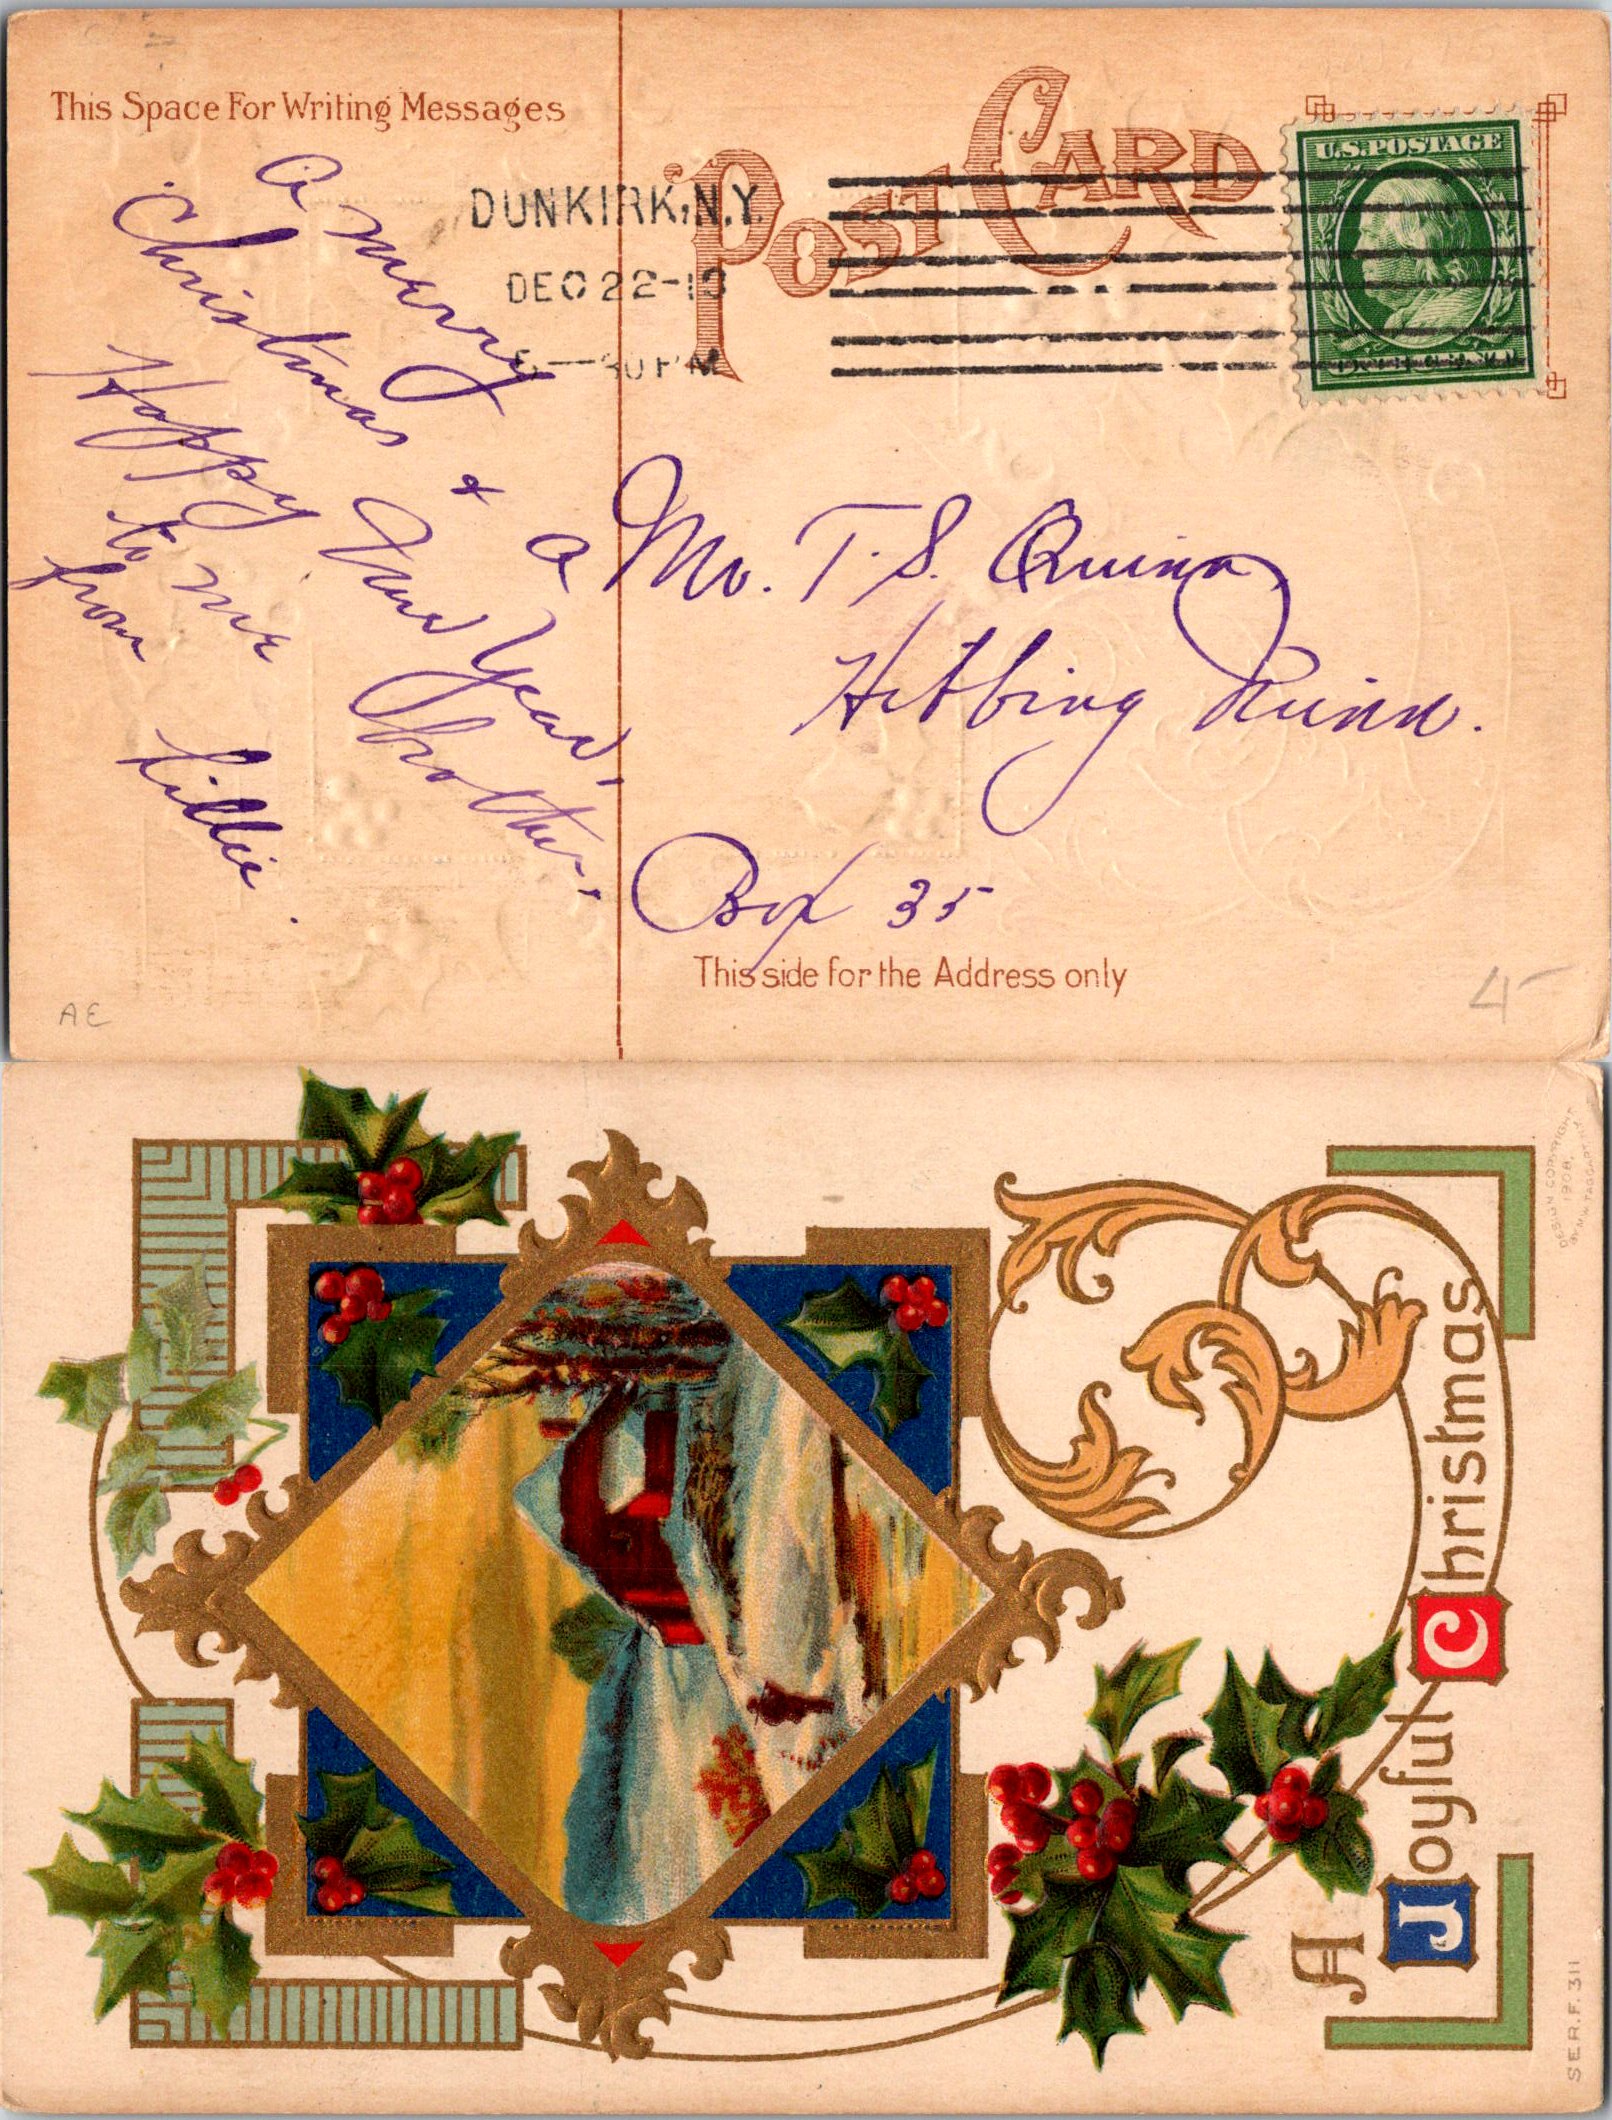 This Space For Writing Messages
POST CARD
U.S. POSTAGE
DUNKIRK, N.Y.
DEC 22-10
5-30 PM
A merry
Christmas & a
Happy New Year,
to me brother,
from Lillie.
Mr. T. S. Quinn
Hibbing Minn.
Box 35
This side for the Address only
AE
A Joyful Christmas
DESIGN COPYRIGHT
1908,
BY M.W. TAGGART N.Y.
SER.F. 311